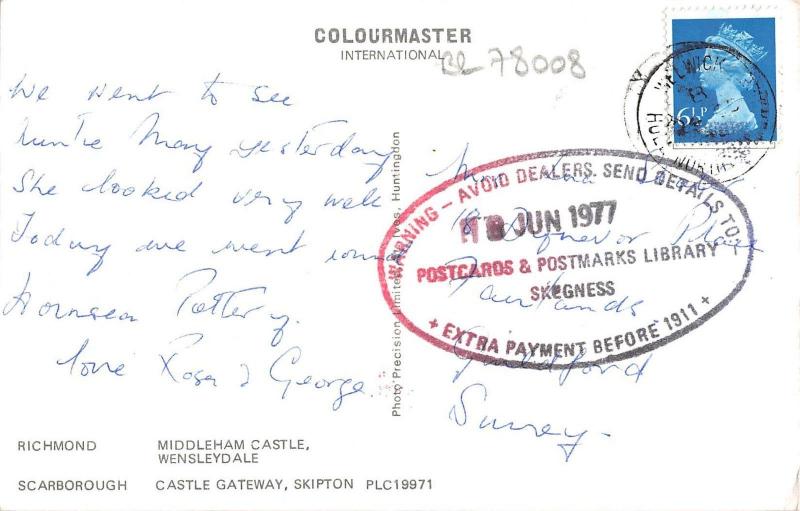 COLOURMASTER
INTERNATIONAL
BL 78008
6½P
We went to see
Auntie May yesterday
She looked very well
Today we went round
Hornsea Pottery.
love Rosa & George
Photo Precision Limited, Ives, Huntingdon
WARNING - AVOID DEALERS. SEND DETAILS TO -
JUN 1977
POSTCARDS & POSTMARKS LIBRARY
SKEGNESS
+ EXTRA PAYMENT BEFORE 1911 +
18 Dynevor Place
Fairlands
Guildford
Surrey -
RICHMOND MIDDLEHAM CASTLE,
WENSLEYDALE
SCARBOROUGH CASTLE GATEWAY, SKIPTON PLC19971